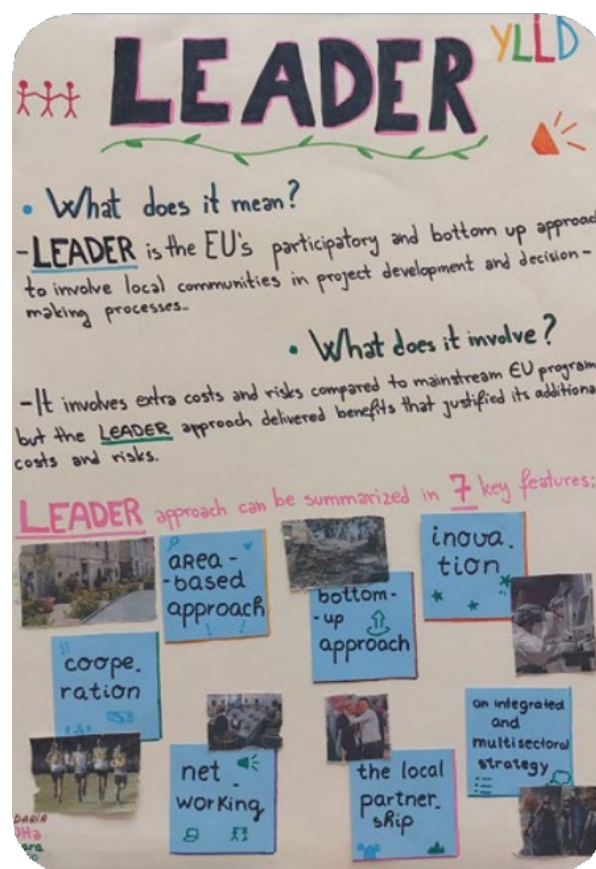 LEADER
YLLD
• What does it mean?
- LEADER is the EU's participatory and bottom up approac
to involve local communities in project development and decision -
making processes..
• What does it involve?
- It involves extra costs and risks compared to mainstream EU program
but the LEADER approach delivered benefits that justified its additiona
costs and risks.
LEADER approach can be summarized in 7 key features:
area -
-based
approach
bottom -
- up
approach
inova.
tion
coope.
ration
net -
working
the local
partner -
ship
an integrated
and
multisectoral
strategy
DARIA